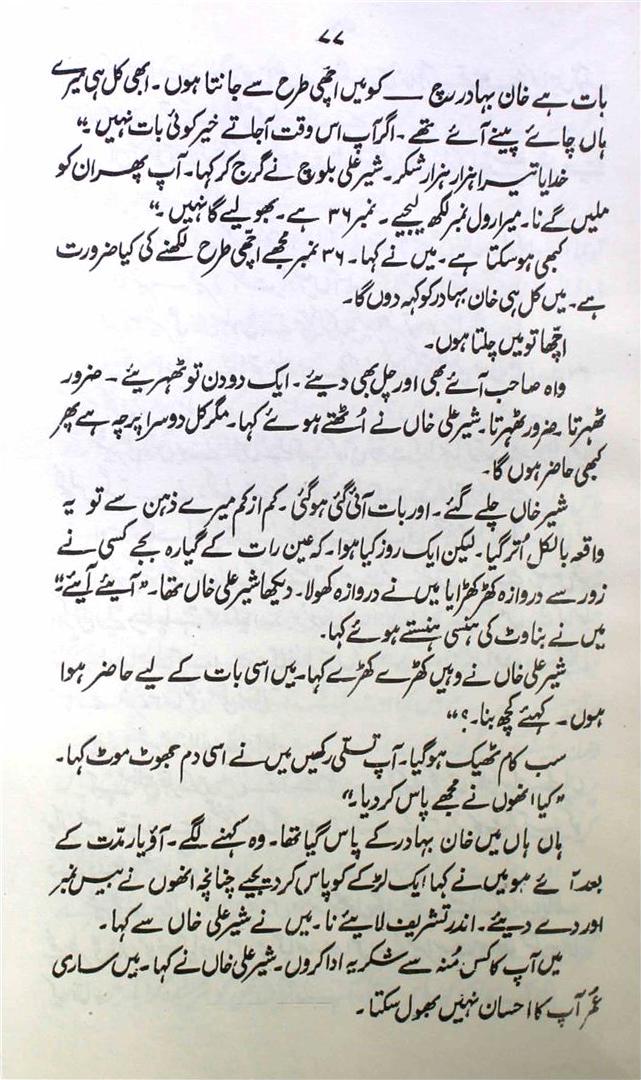 ۷۷
بات ہے خان بہادر سچ — کو میں اچھی طرح سے جانتا ہوں۔ ابھی کل ہی میرے
ہاں چائے پینے آئے تھے۔ اگر آپ اس وقت آجاتے خیر کوئی بات نہیں۔“
خدایا تیرا ہزار ہزار شکر۔ شیر علی بلوچ نے گرج کر کہا۔ آپ پھر ان کو
ملیں گے نا۔ میرا رول نمبر لکھ لیجیے۔ نمبر ۳۶ ہے۔ بھولیے گا نہیں۔“
کبھی ہو سکتا ہے۔ میں نے کہا۔ ۳۶ نمبر مجھے اچھی طرح لکھنے کی کیا ضرورت
ہے۔ میں کل ہی خان بہادر کو کہہ دوں گا۔
اچھا تو میں چلتا ہوں۔
واہ صاحب آئے بھی اور چل بھی دیئے۔ ایک دو دن تو ٹھہریئے۔ ضرور
ٹھہرتا۔ ضرور ٹھہرتا۔ شیر علی خاں نے اُٹھتے ہوئے کہا۔ مگر کل دوسرا پرچہ ہے پھر
کبھی حاضر ہوں گا۔
شیر خاں چلے گئے۔ اور بات آئی گئی ہو گئی۔ کم از کم میرے ذہن سے تو یہ
واقعہ بالکل اُتر گیا۔ لیکن ایک روز کیا ہوا۔ کہ عین رات کے گیارہ بجے کسی نے
زور سے دروازہ کھڑکھڑایا میں نے دروازہ کھولا۔ دیکھا شیر علی خاں تھا۔ ”آیئے آیئے“
میں نے بناوٹ کی ہنسی ہنستے ہوئے کہا۔
شیر علی خاں نے وہیں کھڑے کھڑے کہا۔ میں اسی بات کے لیے حاضر ہوا
ہوں۔ کہئے کچھ بنا۔؟“
سب کام ٹھیک ہو گیا۔ آپ تسلّی رکھیں میں نے اسی دم جھوٹ موٹ کہا۔
”کیا انھوں نے مجھے پاس کر دیا۔“
ہاں ہاں میں خان بہادر کے پاس گیا تھا۔ وہ کہنے لگے۔ آؤ یار مدّت کے
بعد آئے ہو میں نے کہا ایک لڑکے کو پاس کر دیجیے چنانچہ انھوں نے بیس نمبر
اور دے دیئے۔ اندر تشریف لایئے نا۔ میں نے شیر علی خاں سے کہا۔
میں آپ کا کس مُنہ سے شکریہ ادا کروں۔ شیر علی خاں نے کہا۔ میں ساری
عُمر آپ کا احسان نہیں بھول سکتا۔